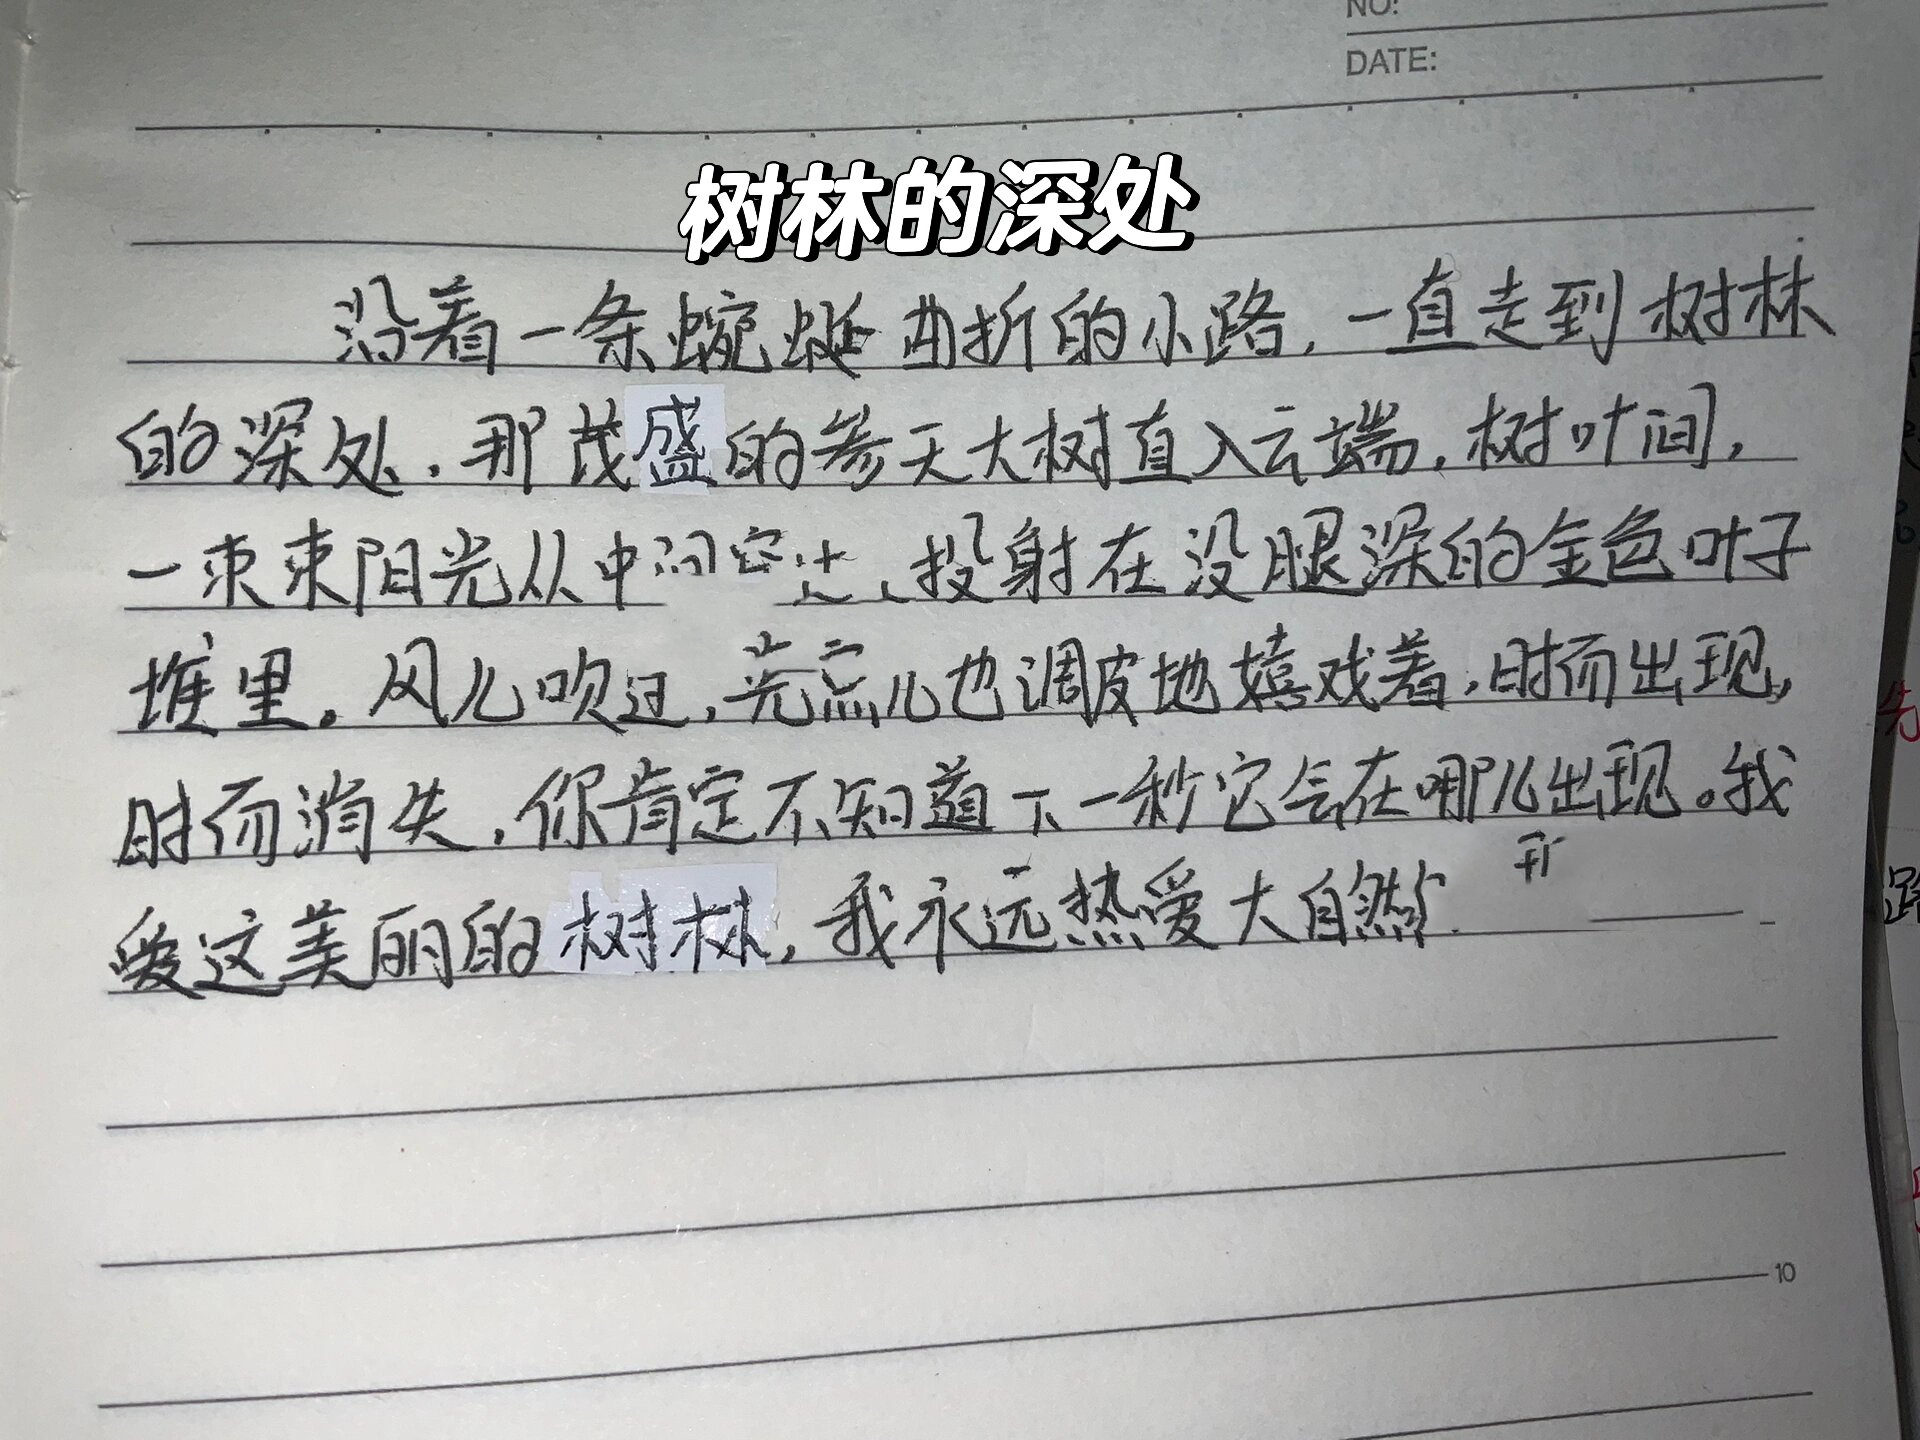 NO:
DATE:
树林的深处
沿着一条蜿蜒曲折的小路,一直走到树林
的深处.那茂盛的参天大树直入云端,树叶间,
一束束阳光从中投射在没腿深的金色叶子
堆里。风儿吹过,光点儿也调皮地嬉戏着,时而出现,
时而消失,你肯定不知道下一秒它会在哪儿出现。我
爱这美丽的树林,我永远热爱大自然
10